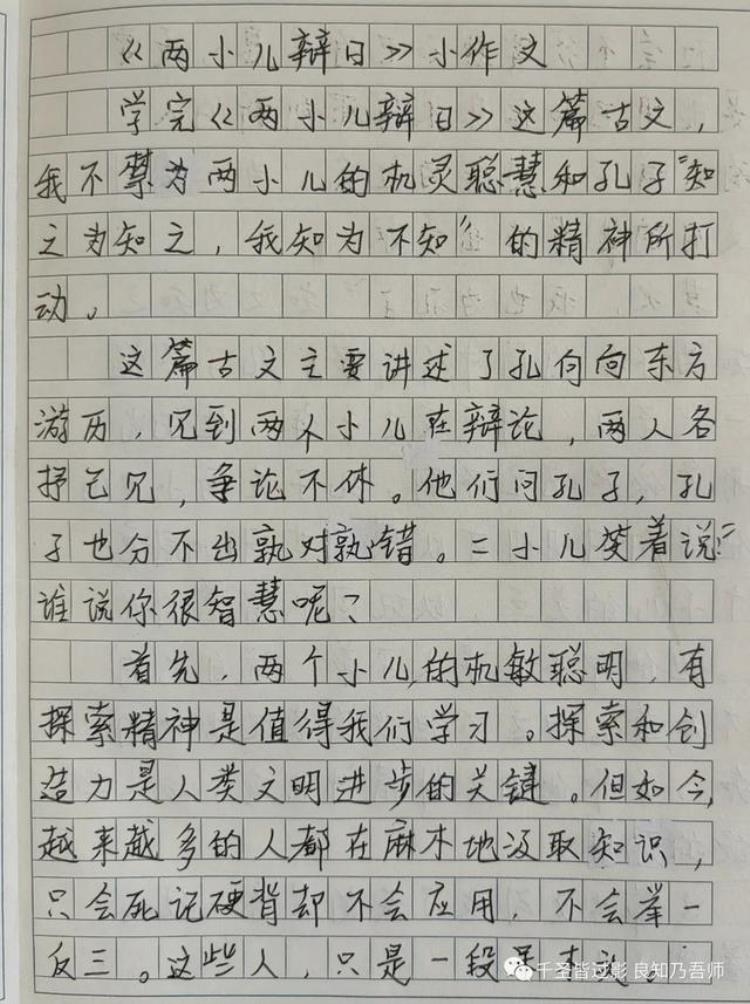 《两小儿辩日》小作文
学完《两小儿辩日》这篇古文，
我不禁为两小儿的机灵聪慧和孔子“知
之为知之，我知为不知”的精神所打
动。
这篇古文主要讲述了孔向向东方
游历，见到两个小儿在辩论，两人各
抒己见，争论不休。他们问孔子，孔
子也分不出孰对孰错。二小儿笑着说：“
谁说你很智慧呢？
首先，两个小儿的机敏聪明，有
探索精神是值得我们学习。探索和创
造力是人类文明进步的关键。但如今，
越来越多的人都在麻木地汲取知识，
只会死记硬背却不会应用，不会举一
反三。这些人，只是一段
千圣皆过影 良知乃吾师